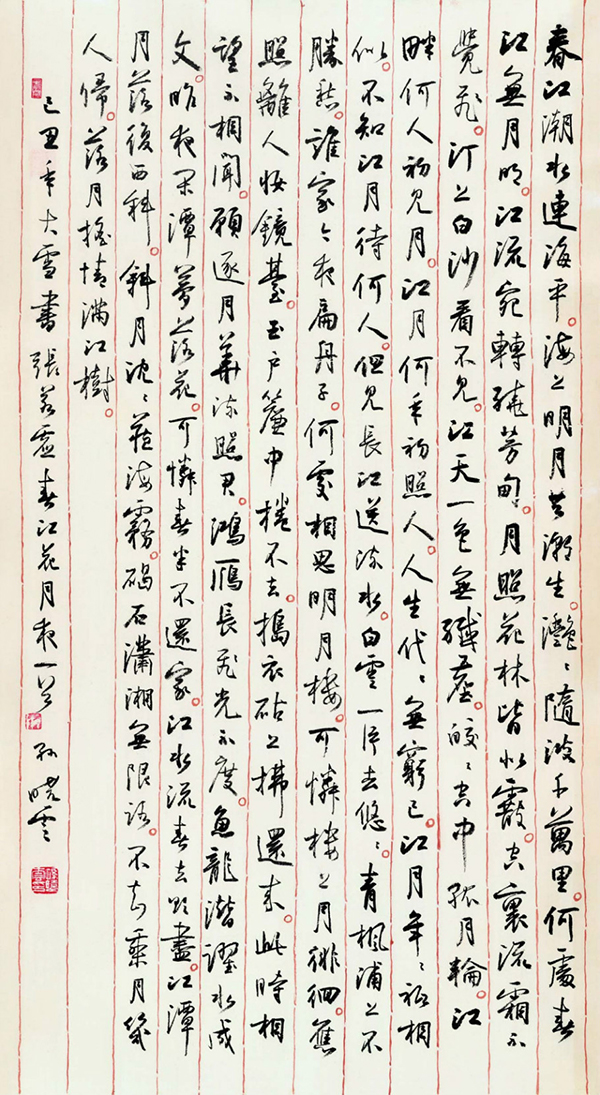 春江潮水連海平。海上明月共潮生。灩灩隨波千萬里。何處春
江無月明。江流宛轉繞芳甸。月照花林皆似霰。空裏流霜不
覺飛。汀上白沙看不見。江天一色無纖塵。皎皎空中孤月輪。江
畔何人初見月。江月何年初照人。人生代代無窮已。江月年年祇相
似。不知江月待何人。但見長江送流水。白雲一片去悠悠。青楓浦上不
勝愁。誰家今夜扁舟子。何處相思明月樓。可憐樓上月徘徊。應
照離人妝鏡臺。玉戶簾中捲不去。搗衣砧上拂還來。此時相
望不相聞。願逐月華流照君。鴻雁長飛光不度。魚龍潛躍水成
文。昨夜閑潭夢落花。可憐春半不還家。江水流春去欲盡。江潭
月落復西斜。斜月沈沈藏海霧。碣石瀟湘無限路。不知乘月幾
人歸。落月搖情滿江樹。
己丑年大雪書張若虛春江花月夜一首 孫曉雲